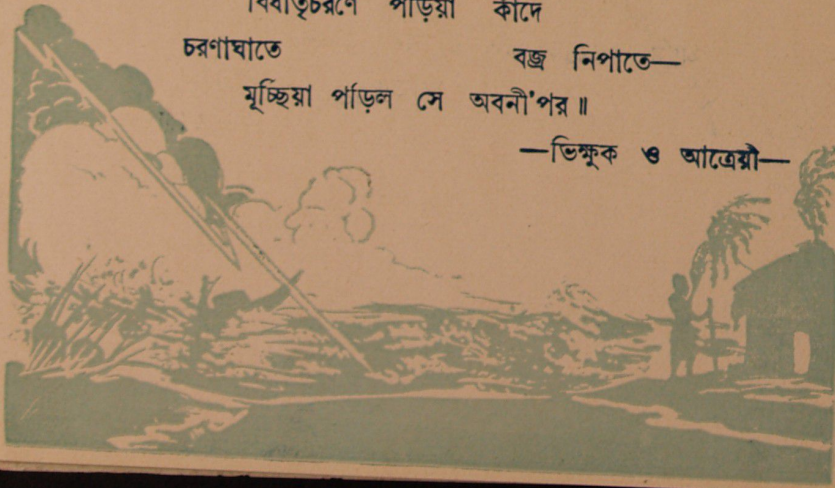 বিধাতৃচরণে পড়িয়া কাঁদে
চরণাঘাতে বজ্র নিপাতে—
মূর্চ্ছিয়া পড়িল সে অবনী'পর॥
—ভিক্ষুক ও আত্রেয়ী—